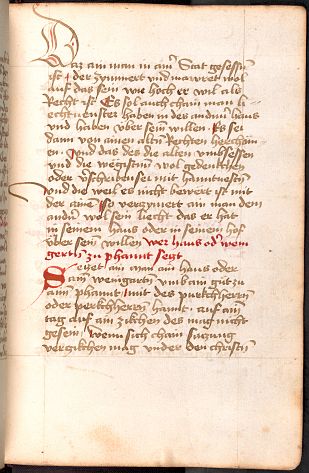 Daz ain man in ainer Stat gesessen
ist der zymmert und mawret wol
auf das sein wie hoch er wil als
Recht ist Es sol auch chain man li-
echt venster haben in des andern haus
und haben uber seinn willen. Es sei
dann von ainen alten Rechten herchom-
en. und das des die alten umbsessen
und die wegisten wol gedenckchen
oder
und die weil es nicht bewert ist mit
der ainem so verzymert ain man dem
andern wol sein liecht das er hat
in seinem haus oder in seinem hof
uber seinn willen wer haus oder wein
gerten zu phannt setzt
Setzet ain man ain haus oder
ain weingarten umb ain gut zu
aim phannt mit des purkchherren
oder perkchherren hannt. auf ain
tag auf ain zil des mag nicht
gesein. wenn sich chain satzung
vergikchen mag under den christen